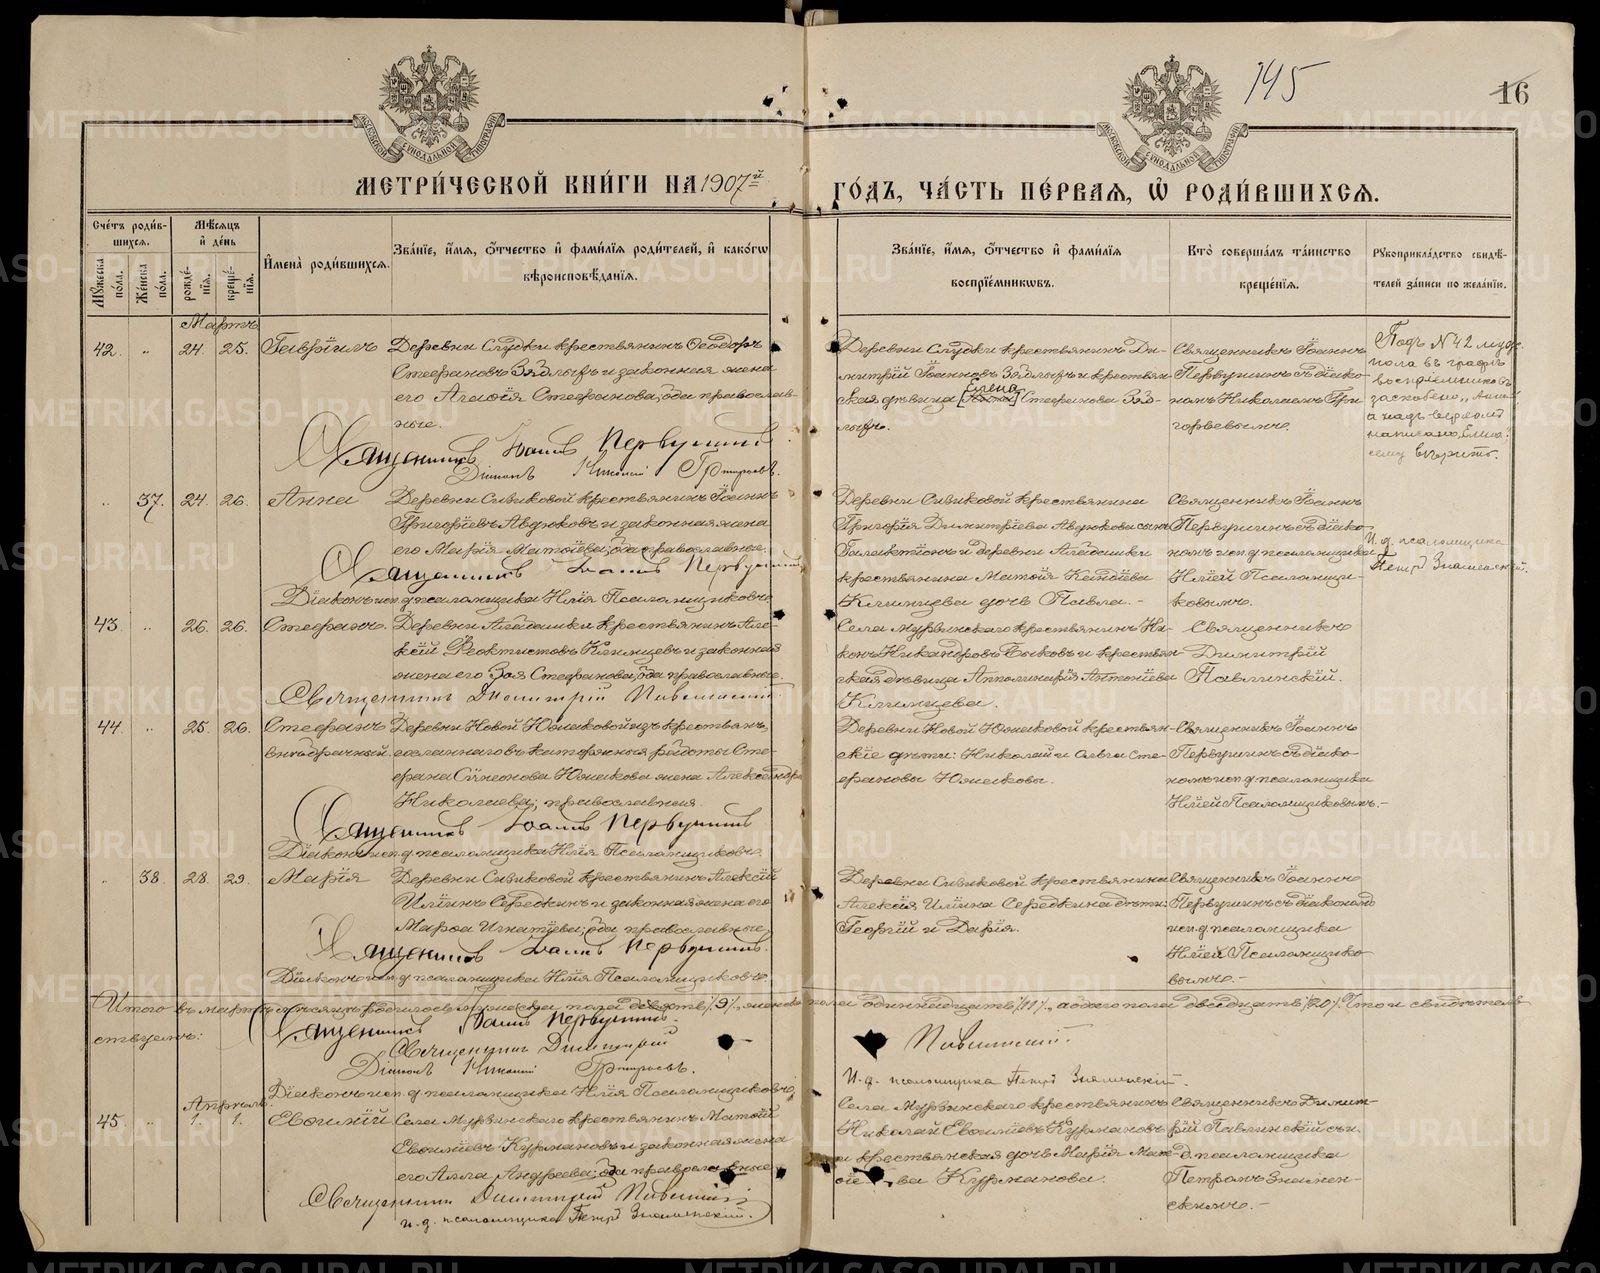 145
16
МЕТРИ́ЧЕСКОЙ КНИ́ГИ НА 1907й
ГО́ДЪ, ЧА́СТЬ ПЕ́РВАЯ, Ѿ РОДИ́ВШИХСЯ.
Сче́тъ роди́в-
шихся.
Мѣ́сяцъ
и҆ де́нь
Мꙋ́жеска по́ла.
Же́нска по́ла.
рожде́-
нїя.
креще́-
нїя.
И҆мена̀ роди́вшихся.
Зва́нїе, и҆́мя, ѻ҆́тчество и҆ фами́лїя роди́телей, и҆ како́гѡ
вѣроисповѣ́данїя.
Зва́нїе, и҆́мя, ѻ҆́тчество и҆ фами́лїя
воспрїе́мниковъ.
Кто̀ соверша́лъ та́инство
креще́нїя.
Рꙋкоприкла́дство свидѣ́-
телей за́писи по жела́нїю.
Мартъ
42. „ 24. 25. Гавріилъ
Деревни Слудки крестьянинъ Ѳеодоръ
Стефановъ Зяблыхъ и законная жена
его Агаѳія Стефанова; оба православ-
ные.
Священникъ Іоаннъ Первушинъ
Діаконъ Николай Григорьевъ.
Деревни Слудки крестьянинъ Ди-
митрій Іоанновъ Зяблыхъ и крестьян-
Елена
ская дѣвица [Анна] Стефанова Зяб-
лыхъ.
Священникъ Іоаннъ
Первушинъ съ діако-
номъ Николаемъ Гри-
горьевымъ.
Подъ № 42 муж.
пола въ графѣ
воспріемниковъ
заскоблено „Анна“
а надъ верхомъ
написано „Елена“
сему вѣрить.
„ 37. 24. 26. Анна
Деревни Сивковой крестьянинъ Іоаннъ
Григоріевъ Авдюковъ и законная жена
его Марія Матѳіева; оба православные.
Священникъ Іоаннъ Первушинъ
Діаконъ исп. д. псаломщика Илія Псаломщиковъ.
Деревни Сивковой крестьянина
Григорія Димитріева Авдюкова сынъ
Галактіонъ и деревни
крестьянина Матѳія
Клинцева дочь Павла.-
Священникъ Іоаннъ
Первушинъ съ діако-
номъ исп. д. псаломщика
Иліей Псаломщи-
ковымъ.
И. д. псаломщика
Петръ Знаменскій.
43. „ 26. 26. Стефанъ.
Деревни крестьянинъ Але-
ксій Ѳеоктистовъ Клинцевъ и законная
жена его Зоя Стефанова; оба православные.
Священникъ Димитрій Павлинскій.
Села Мурзинскаго крестьянинъ Ни-
конъ Никандровъ Быковъ и крестьян-
ская дѣвица Апполинарія Антоніева
Клинцева.
Священникъ
Димитрій
Павлинскій.
44. „ 25. 26. Стефанъ
внѣбрачный.
Деревни Новой Южаковой изъ крестьянъ,
сосланнаго въ каторжныя работы Сте-
фана Сѵмеонова Южакова жена Александра
Николаева; православныя.
Священникъ Іоаннъ Первушинъ
Діаконъ исп. д. псаломщика Илія Псаломщиковъ.
Деревни Новой Южаковой крестьян-
скіе дѣти: Николай и Ольга Сте-
фановы Южаковы.
Священникъ Іоаннъ
Первушинъ съ діако-
номъ исп. д. псаломщика
Иліей Псаломщиковымъ.-
„ 38. 28. 29. Марія
Деревни Сивковой крестьянинъ Алексій
Иліинъ Середкинъ и законная жена его
Марѳа Игнатіева; оба православные.
Священникъ Іоаннъ Первушинъ.
Діаконъ исп. д. псаломщика Илія Псаломщиковъ.
Деревни Сивковой крестьянина
Алексія Иліина Середкина дѣти:
Георгій и Дарія.
Священникъ Іоаннъ
Первушинъ съ діакономъ
исп. д. псаломщика
Иліей Псаломщико-
вымъ.-
Итого въ мартѣ мѣсяцѣ родилось мужеска пола девять /9/, женска пола одиннадцать /11/, а обоего пола двадцать /20/. Въ томъ и свидѣтель-
ствуемъ:
Священникъ Іоаннъ Первушинъ.
Священникъ Димитрій Павлинскій.
Діаконъ Николай Григорьевъ.
И. д. псаломщика Петръ Знаменскій.
Діаконъ исп. д. псаломщика Илія Псаломщиковъ.
Апрѣль.
45. „ 1. 1. Евѳимій
Села Мурзинскаго крестьянинъ Матѳій
Евѳиміевъ Курмановъ и законная жена
его Алла Андреева; оба православные.
Священникъ Димитрій Павлинскій
и. д. псаломщика Петръ Знаменскій.
Села Мурзинскаго крестьянинъ
Николай Евѳиміевъ Курмановъ
и крестьянская дочь Марія Мат-
ѳіева Курманова.
Священникъ Димит-
рій Павлинскій съ и.
д. псаломщика
Петромъ Знамен-
скимъ.-